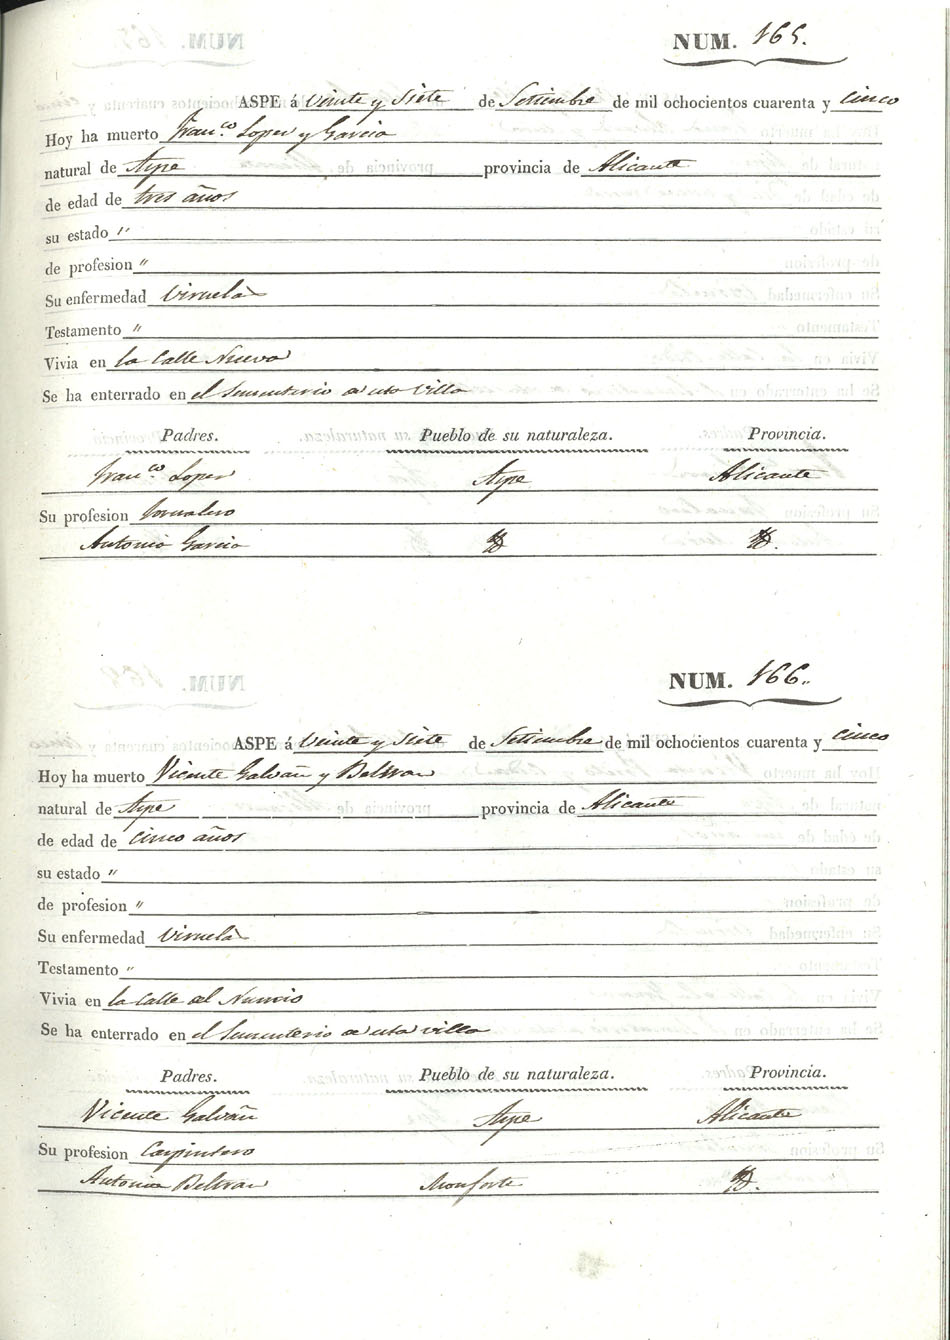 NUM. 165.
ASPE á Veinte y Siete de Setiembre de mil ochocientos cuarenta y cinco
Hoy ha muerto Fran.co Lopez y Garcia
natural de Aspe provincia de Alicante
de edad de tres años
su estado "
de profesion "
Su enfermedad Viruela
Testamento "
Vivia en la Calle Nueva
Se ha enterrado en el Sementerio de esta Villa
Padres. Pueblo de su naturaleza. Provincia.
Fran.co Lopez Aspe Alicante
Su profesion Jornalero
Antonia Garcia
NUM. 166.
ASPE á Veinte y Siete de Setiembre de mil ochocientos cuarenta y cinco
Hoy ha muerto Vicente Galvañ y Beltran
natural de Aspe provincia de Alicante
de edad de cinco años
su estado "
de profesion "
Su enfermedad Viruela
Testamento "
Vivia en la Calle del Nuncio
Se ha enterrado en el Sementerio de esta villa
Padres. Pueblo de su naturaleza. Provincia.
Vicente Galvañ Aspe Alicante
Su profesion Carpintero
Antonia Beltran Monforte